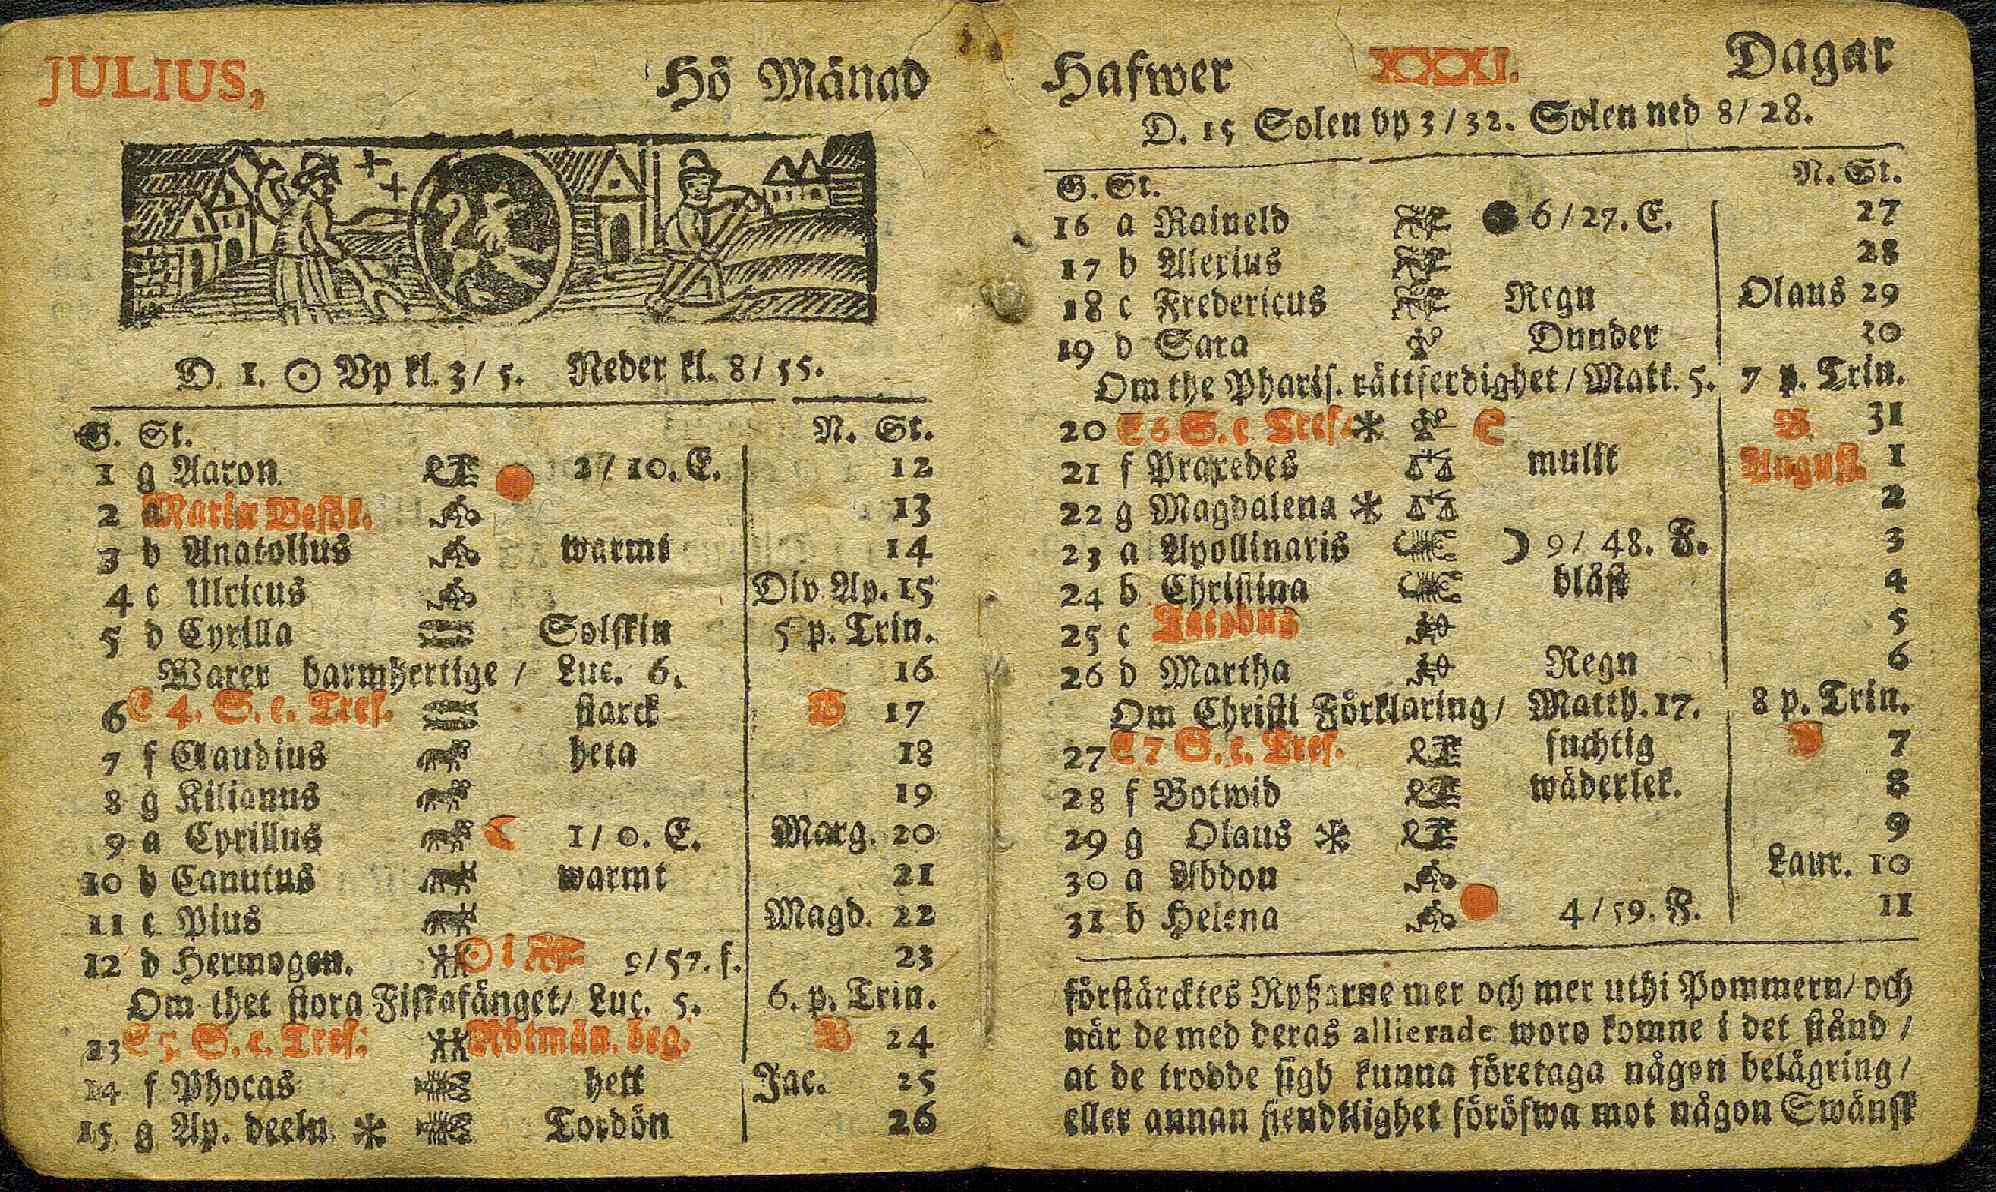 JULIUS, Hö Månad
D. 1. ☉ Vp kl. 3/ 5. Neder kl. 8/ 55.
G. St. N. St.
1 g Aaron 2/ 10. E. 12
2 a Mariæ Besök. 13
3 b Anatolius warmt 14
4 c Ulricus Div. Ap. 15
5 d Cyrilla Solskin 5 p. Trin.
Warer barmhertige / Luc. 6. 16
6 E 4. S. e. Tref. starck B 17
7 f Claudius heta 18
8 g Kilianus 19
9 a Cyrillus ☾ 1/ 0. E. Marg. 20
10 b Canutus warmt 21
11 c Pius Magd. 22
12 d Hermogen. ☉ i 9/57. f. 23
Om thet stora Fiskafänget/ Luc. 5. 6. p. Trin.
13 E 5. S. e. Tref: Rötmån. beg. B 24
14 f Phocas hett Jac. 25
15 g Ap. deeln. * Tordön 26
Hafwer XXXI. Dagar
D. 15 Solen vp 3/32. Solen ned 8/28.
G. St. N. St.
16 a Raineld ● 6/27. E. 27
17 b Alexius 28
18 c Fredericus Regn Olaus 29
19 d Sara Dunder 30
Om the Pharis. rättferdighet/ Matt. 5. 7 p. Trin.
20 E 6 S. e Tref. * B 31
21 f Praxedes mulit August. 1
22 g Magdalena * 2
23 a Apollinaris ☽ 9/ 48. F. 3
24 b Christina blåst 4
25 c Jacobus 5
26 d Martha Regn 6
Om Christi Förklaring/ Matth. 17. 8 p. Trin.
27 E 7 S. e. Tref. fuchtig 7
28 f Botwid wäderlek. 8
29 g Olaus * 9
30 a Abdon Laur. 10
31 b Helena 4/59. F. 11
förstärcktes Ryßarne mer och mer uthi Pommern/ och
när de med deras allierade woro komne i det stånd /
at de trodde sigh kunna företaga någon belägring /
eller annan fiendtlighet föröfwa mot någon Swänsk